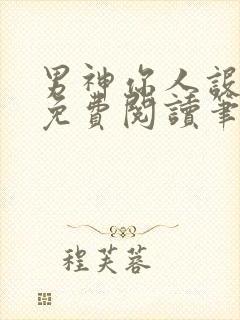 男神你人設
免費閱讀筆
程芙蓉